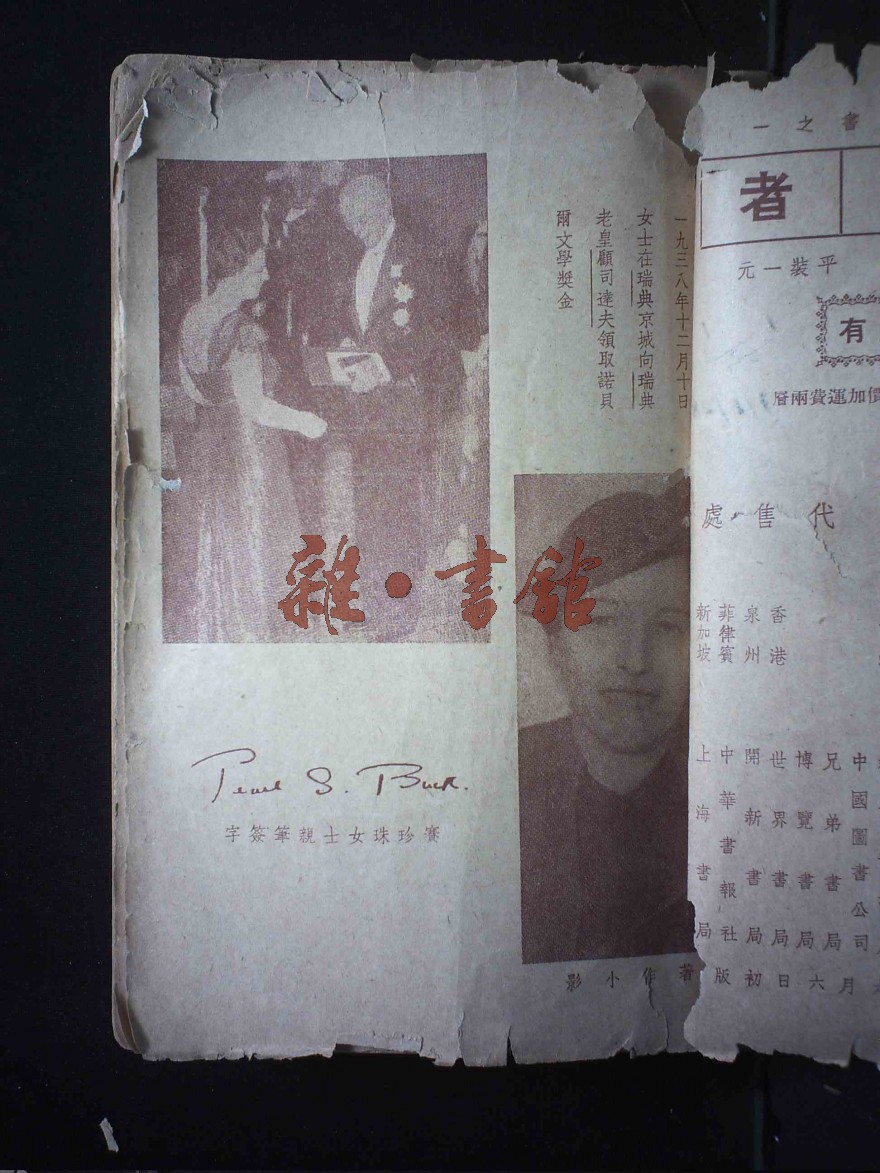 一九三八年十二月十日
女士在瑞典京城向瑞典
老皇顧司達夫領取諾貝
爾文學獎金
Pearl S. Buck.
字簽筆親士女珠珍賽
影小作著
雜·書館
一之書
者
元一裝平
有
層兩費運加價
處售代
香港
泉州
菲律賓
新加坡
中國圖書公司
兄弟書局
博覽書局
世界書局
開新書局
中華書報社
上海書局
版初日六月